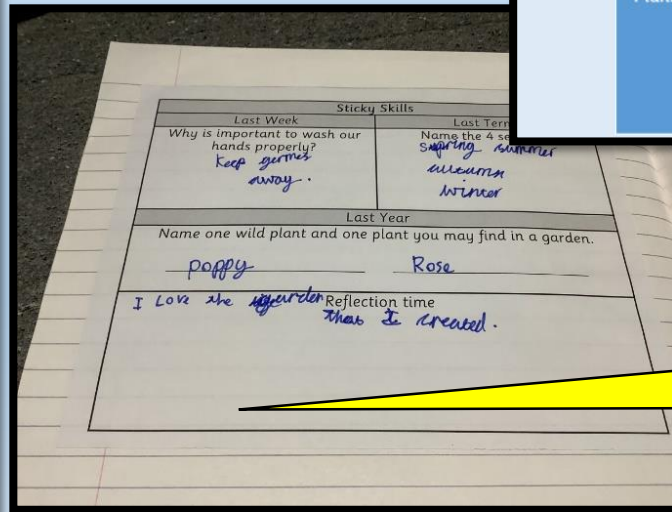 Sticky Skills
Last Week
Why is important to wash our
hands properly?
Keep germes
away.
Last Tern
Name the 4 se
spring summer
autumn
winter
Last Year
Name one wild plant and one plant you may find in a garden.
poppy Rose
Reflection time
I Love the garden
that I created.